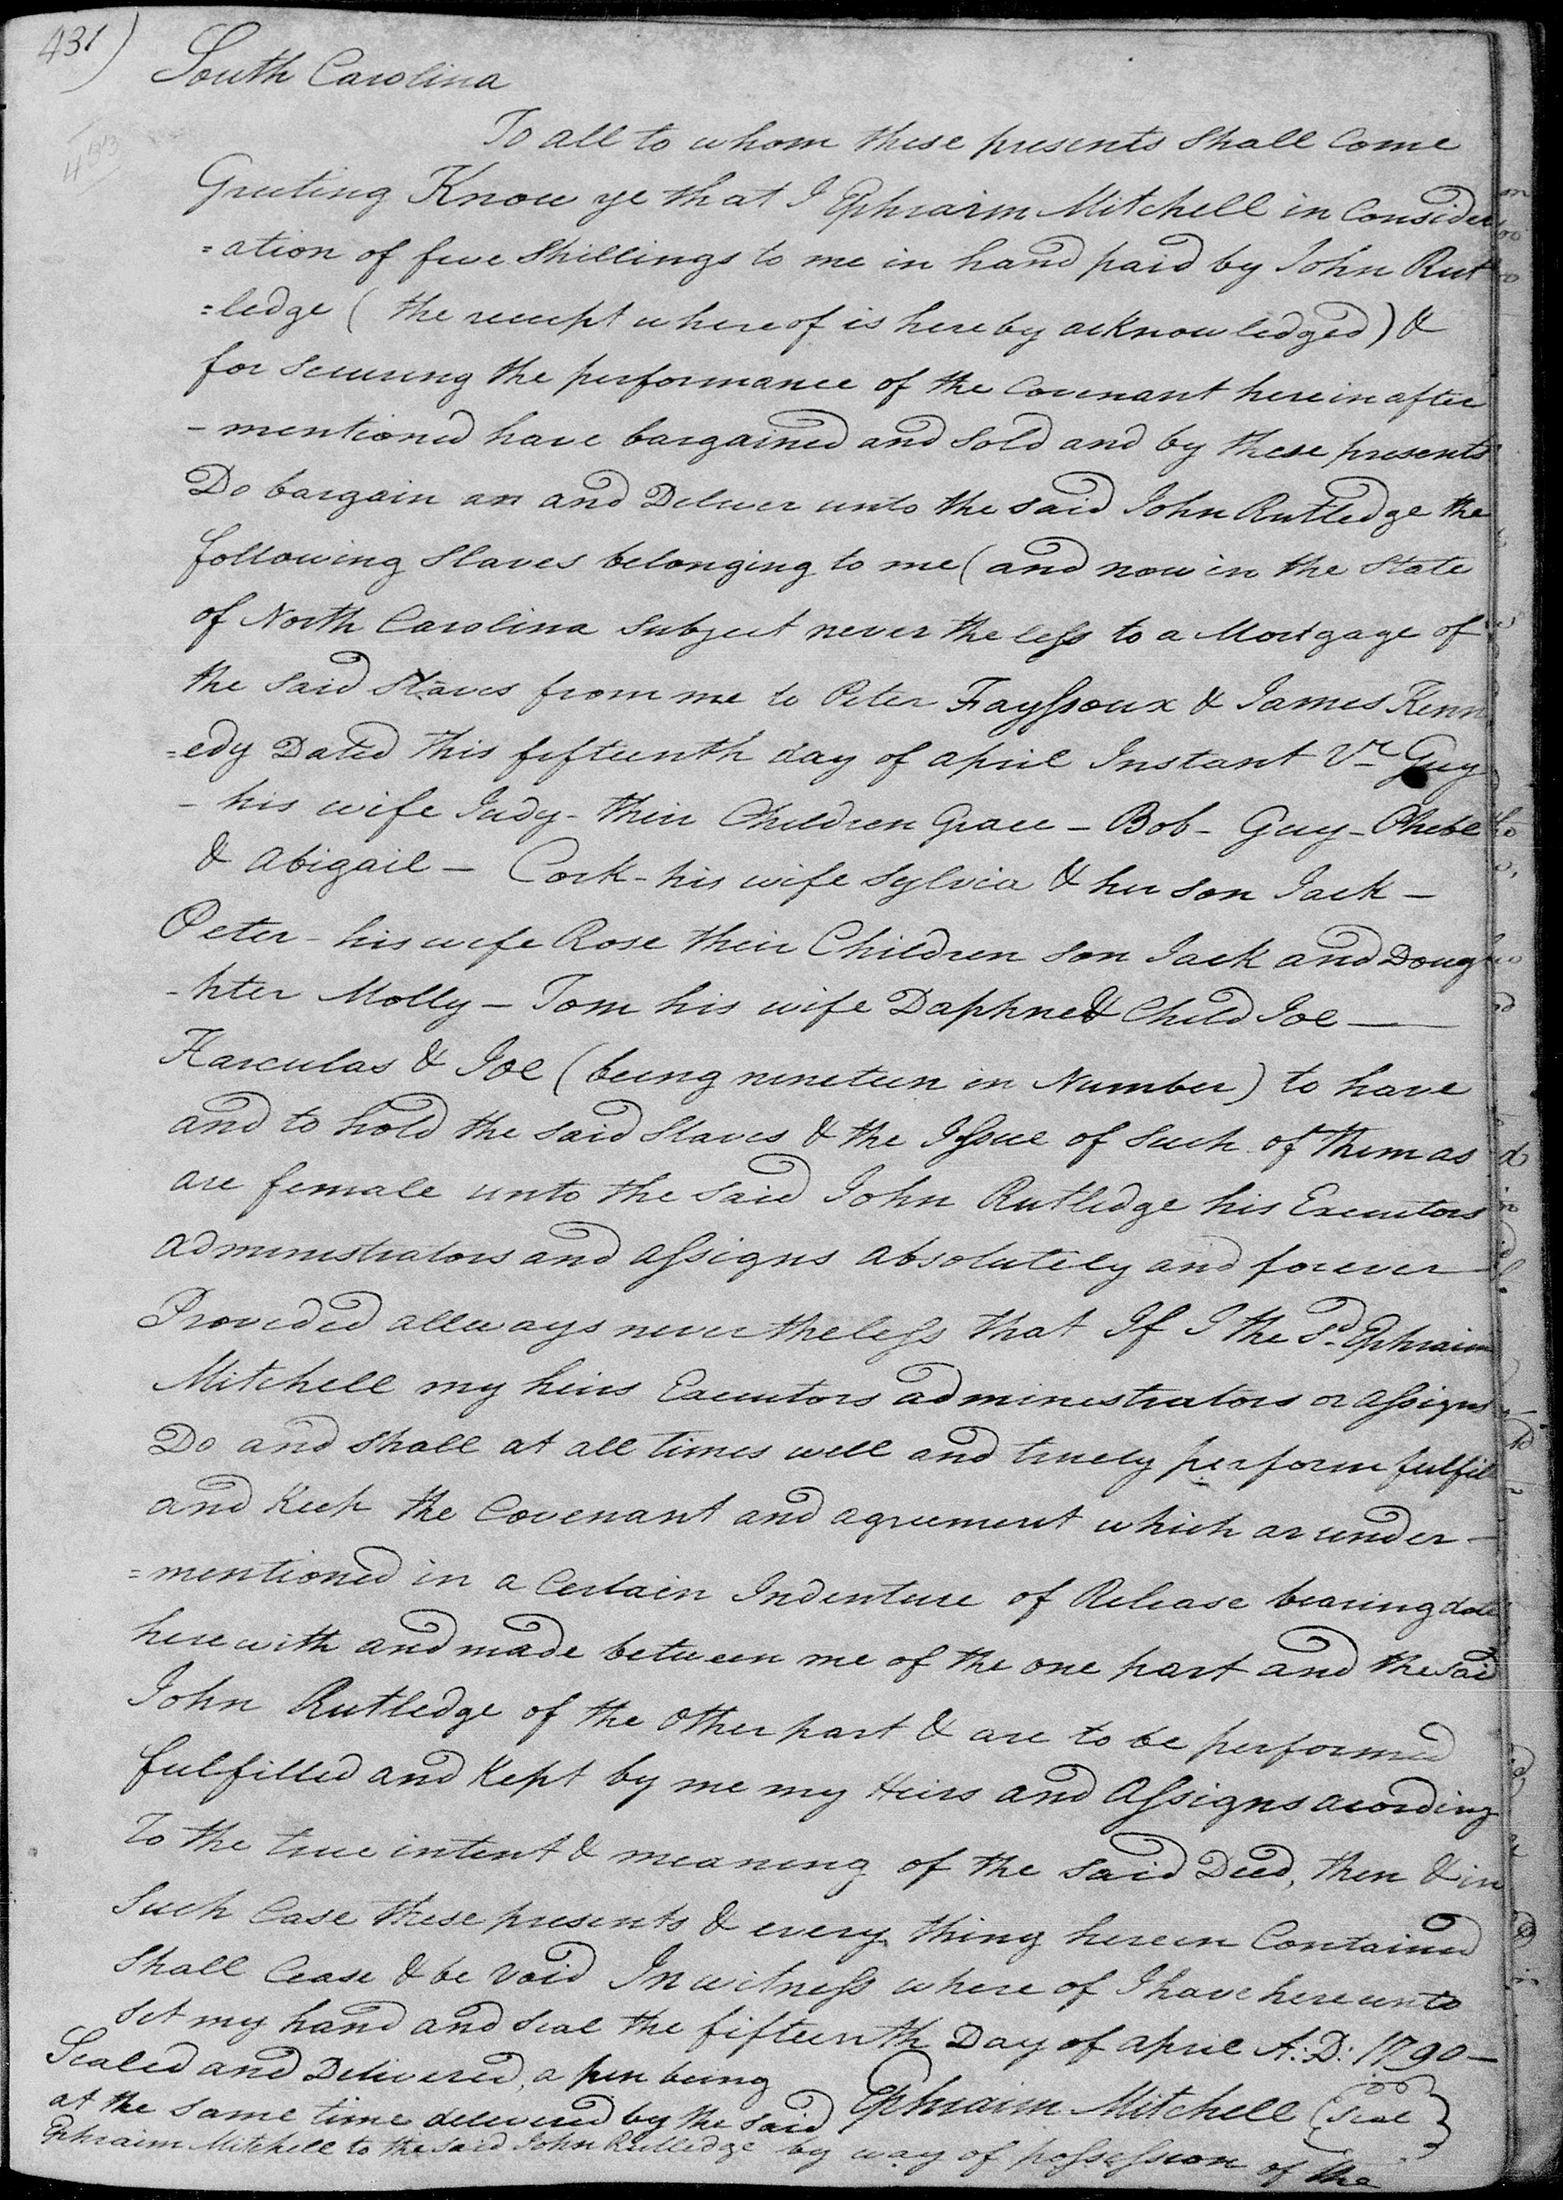 431)
South Carolina
To all to whom these presents Shall Come
Greeting Know ye that I Ephraim Mitchell in Consider
=ation of five Shillings to me in hand paid by John Rut
=ledge ( the receipt where of is here by acknow ledged ) &
for securing the performance of the Covenant herein after
- mentioned have bargained and Sold and by these presents
Do bargain an and Deliver unto the said John Rutledge the
following Slaves belonging to me ( and now in the State
of North Carolina Subject never the less to a Mortgage of
the said Slaves from me to Peter Fayssoux & James Kenn
=edy Dated this fifteenth day of april Instant Vr Guy
- his wife Judy - their Children Grace - Bob - Guy - Phebe
& Abigail - Cork - his wife Sylvia & her son Jack -
Peter - his wife Rose their Children son Jack and Doug
-hter Molly - Tom his wife Daphne & Child Joe -
Harculas & Joe ( being nineteen in Number ) to have
and to hold the said Slaves & the Issue of Such of them as
are female unto the said John Rutledge his Executors
administrators and assigns absolutely and forever
Provided allways never theless that If I the Sd Ephraim
Mitchell my heirs Executors administrators or assigns
Do and Shall at all Times well and truely perform fulfil
and Keep the Covenant and agreement which ar under -
=mentioned in a Certain Indenture of Release bearing date
here with and made between me of the one part and the said
John Rutledge of the Other part & are to be performed
fulfilled and Kept by me my Heirs and Assigns acording
To the true intent & meaning of the said Deed, then & in
Such Case these presents & every thing herein Contained
Shall Cease & be Void In witness where of I have here unto
Set my hand and Seal the fifteenth Day of april A: D: 1790 -
Sealed and Delivered, a pen being
Ephraim Mitchell (Seal)
at the same time delivered by the said
Ephraim Mitchell to the said John Rutledge by way of possession of the